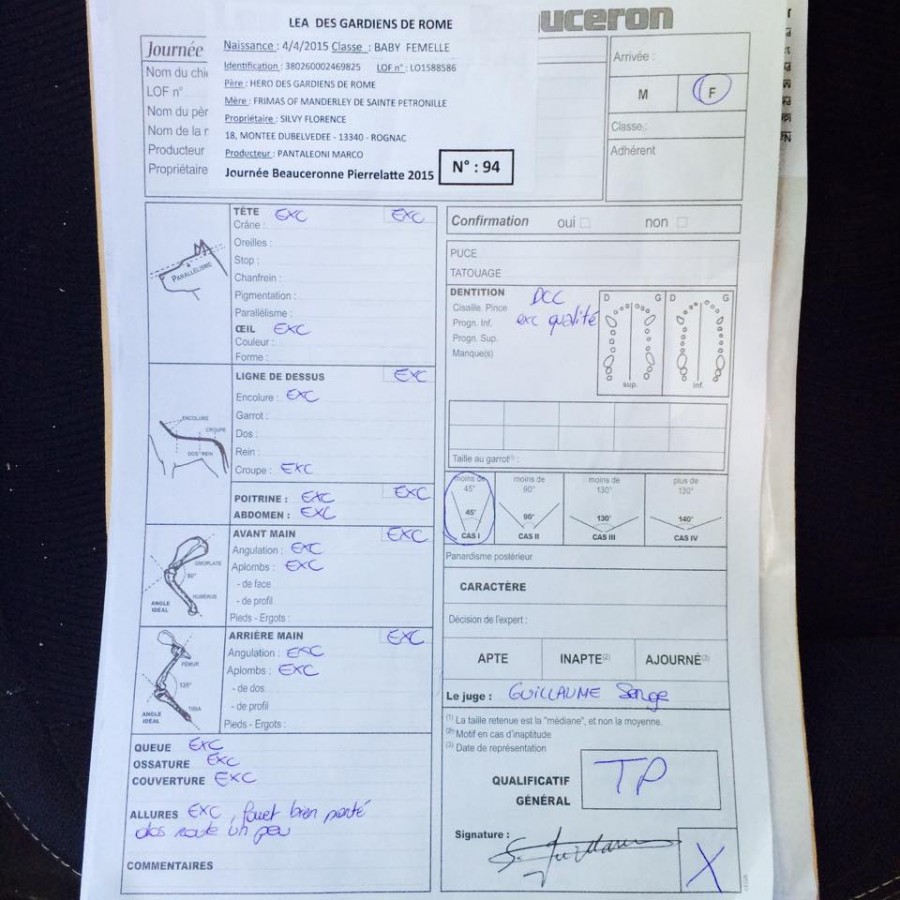 LEA DES GARDIENS DE ROME
uceron
Journée
Naissance : 4/4/2015 Classe : BABY FEMELLE
Identification : 380260002469825 LOF n° : LO1588586
Père : HERO DES GARDIENS DE ROME
Mère : FRIMAS OF MANDERLEY DE SAINTE PETRONILLE
Propriétaire : SILVY FLORENCE
18, MONTEE DUBELVEDEE - 13340 - ROGNAC
Producteur : PANTALEONI MARCO
Journée Beauceronne Pierrelatte 2015
N° : 94
Nom du chi
LOF n°
Nom du pèr
Nom de la r
Producteur
Propriétaire
Arrivée :
M F
Classe :
Adhérent
TÊTE EXC EXC
Crâne :
Oreilles :
Stop :
Chanfrein :
Pigmentation :
Parallélisme :
ŒIL EXC
Couleur :
Forme :
PARALLÉLISME
LIGNE DE DESSUS EXC
Encolure : EXC
Garrot :
Dos :
Rein :
Croupe : EXC
ENCOLURE
CROUPE
DOS REIN
POITRINE : EXC EXC
ABDOMEN : EXC
AVANT MAIN EXC
Angulation : EXC
Aplombs : EXC
- de face
- de profil
Pieds - Ergots :
OMOPLATE
90°
HUMÉRUS
ANGLE
IDÉAL
ARRIÈRE MAIN EXC
Angulation : EXC
Aplombs : EXC
- de dos
- de profil
Pieds - Ergots :
FÉMUR
125°
TIBIA
ANGLE
IDÉAL
QUEUE EXC
OSSATURE EXC
COUVERTURE EXC
ALLURES EXC, fouet bien porté
dos voute un peu
COMMENTAIRES
Confirmation oui non
PUCE
TATOUAGE
DENTITION DCC
Cisaille. Pince exc qualité
Progn. Inf.
Progn. Sup.
Manque(s)
D G D G
sup. inf.
Taille au garrot(1) :
moins de 45° moins de 90° moins de 130° plus de 130°
45° 90° 130° 140°
CAS I CAS II CAS III CAS IV
Panardisme postérieur
CARACTÈRE
Décision de l'expert :
APTE INAPTE(2) AJOURNÉ(3)
Le juge : GUILLAUME Serge
(1) La taille retenue est la "médiane", et non la moyenne.
(2) Motif en cas d'inaptitude
(3) Date de représentation
QUALIFICATIF
GÉNÉRAL
TP
Signature :
X